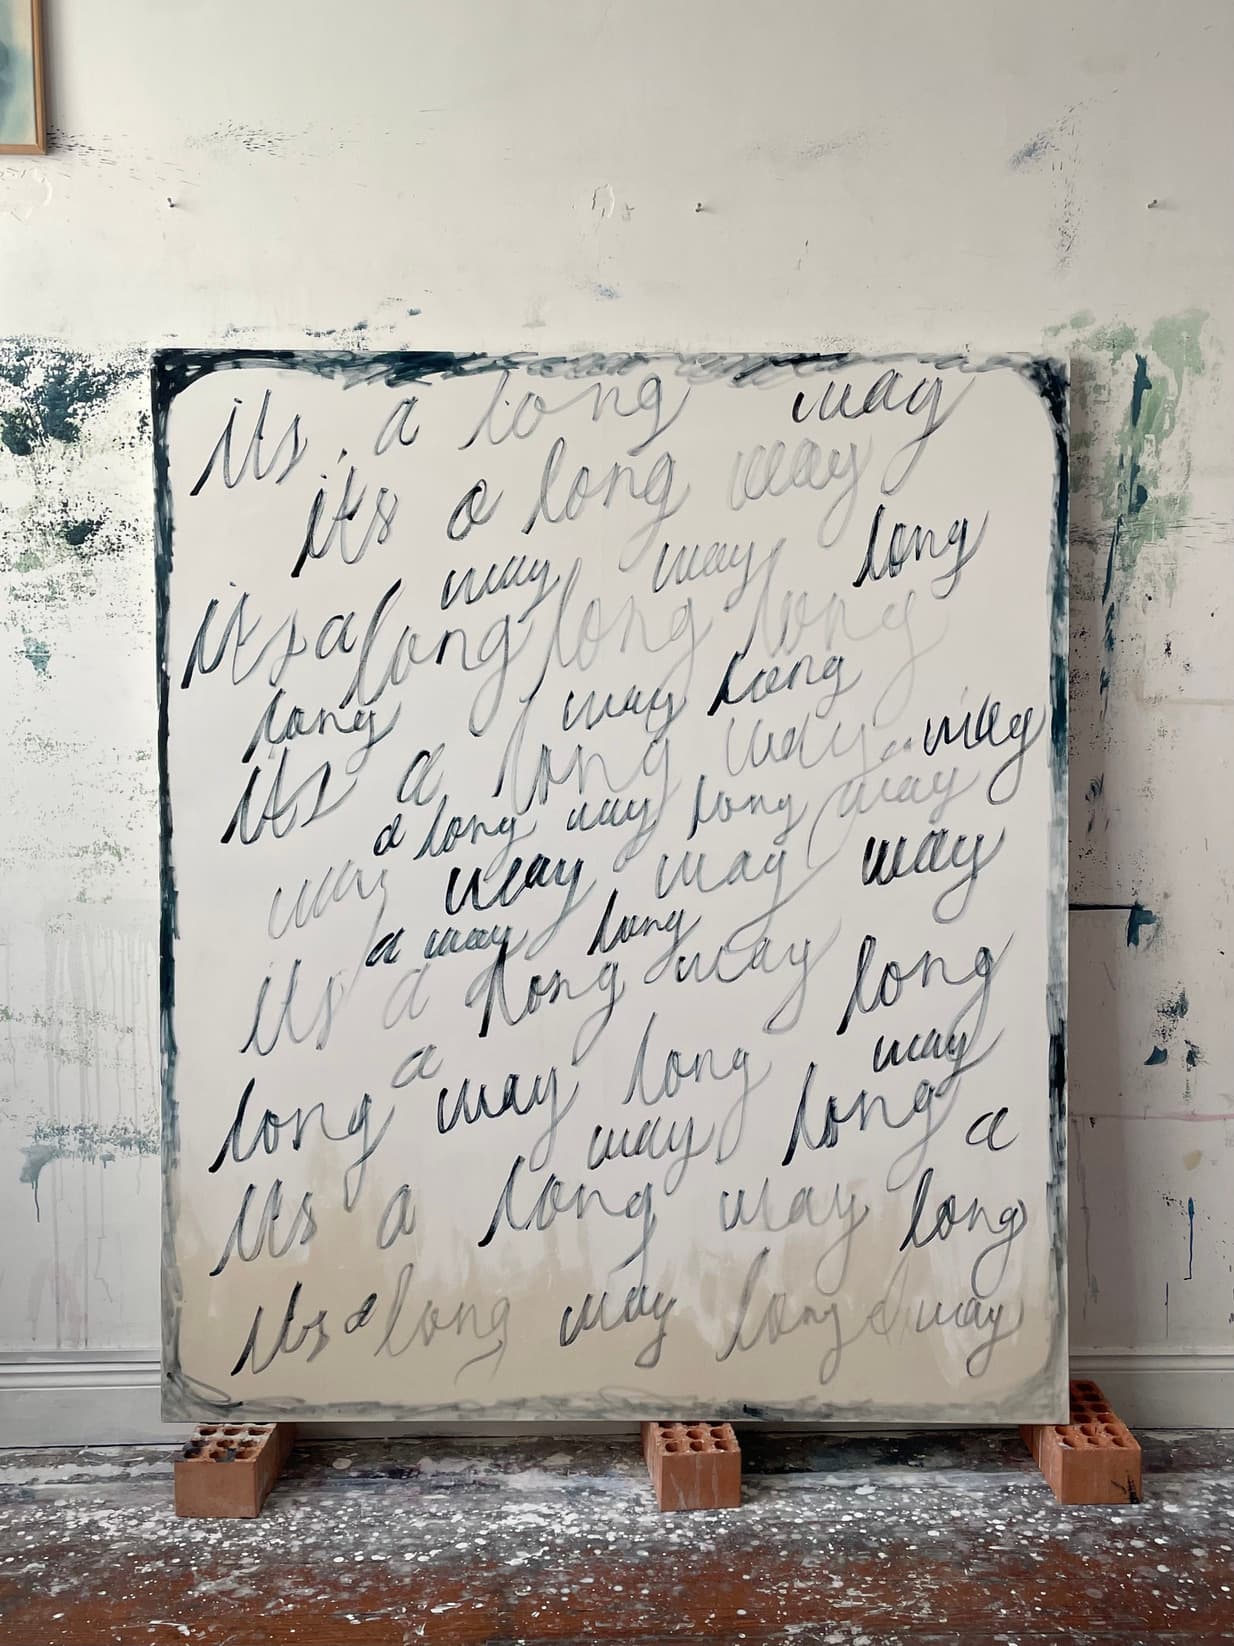 its a long way
its a long way
way way long
its a long long long
long way long
its a long way way
a long way long way
way way way way
a way long
its a long way long
a way
long way long
way long a
its a long way long
its a long way long a way